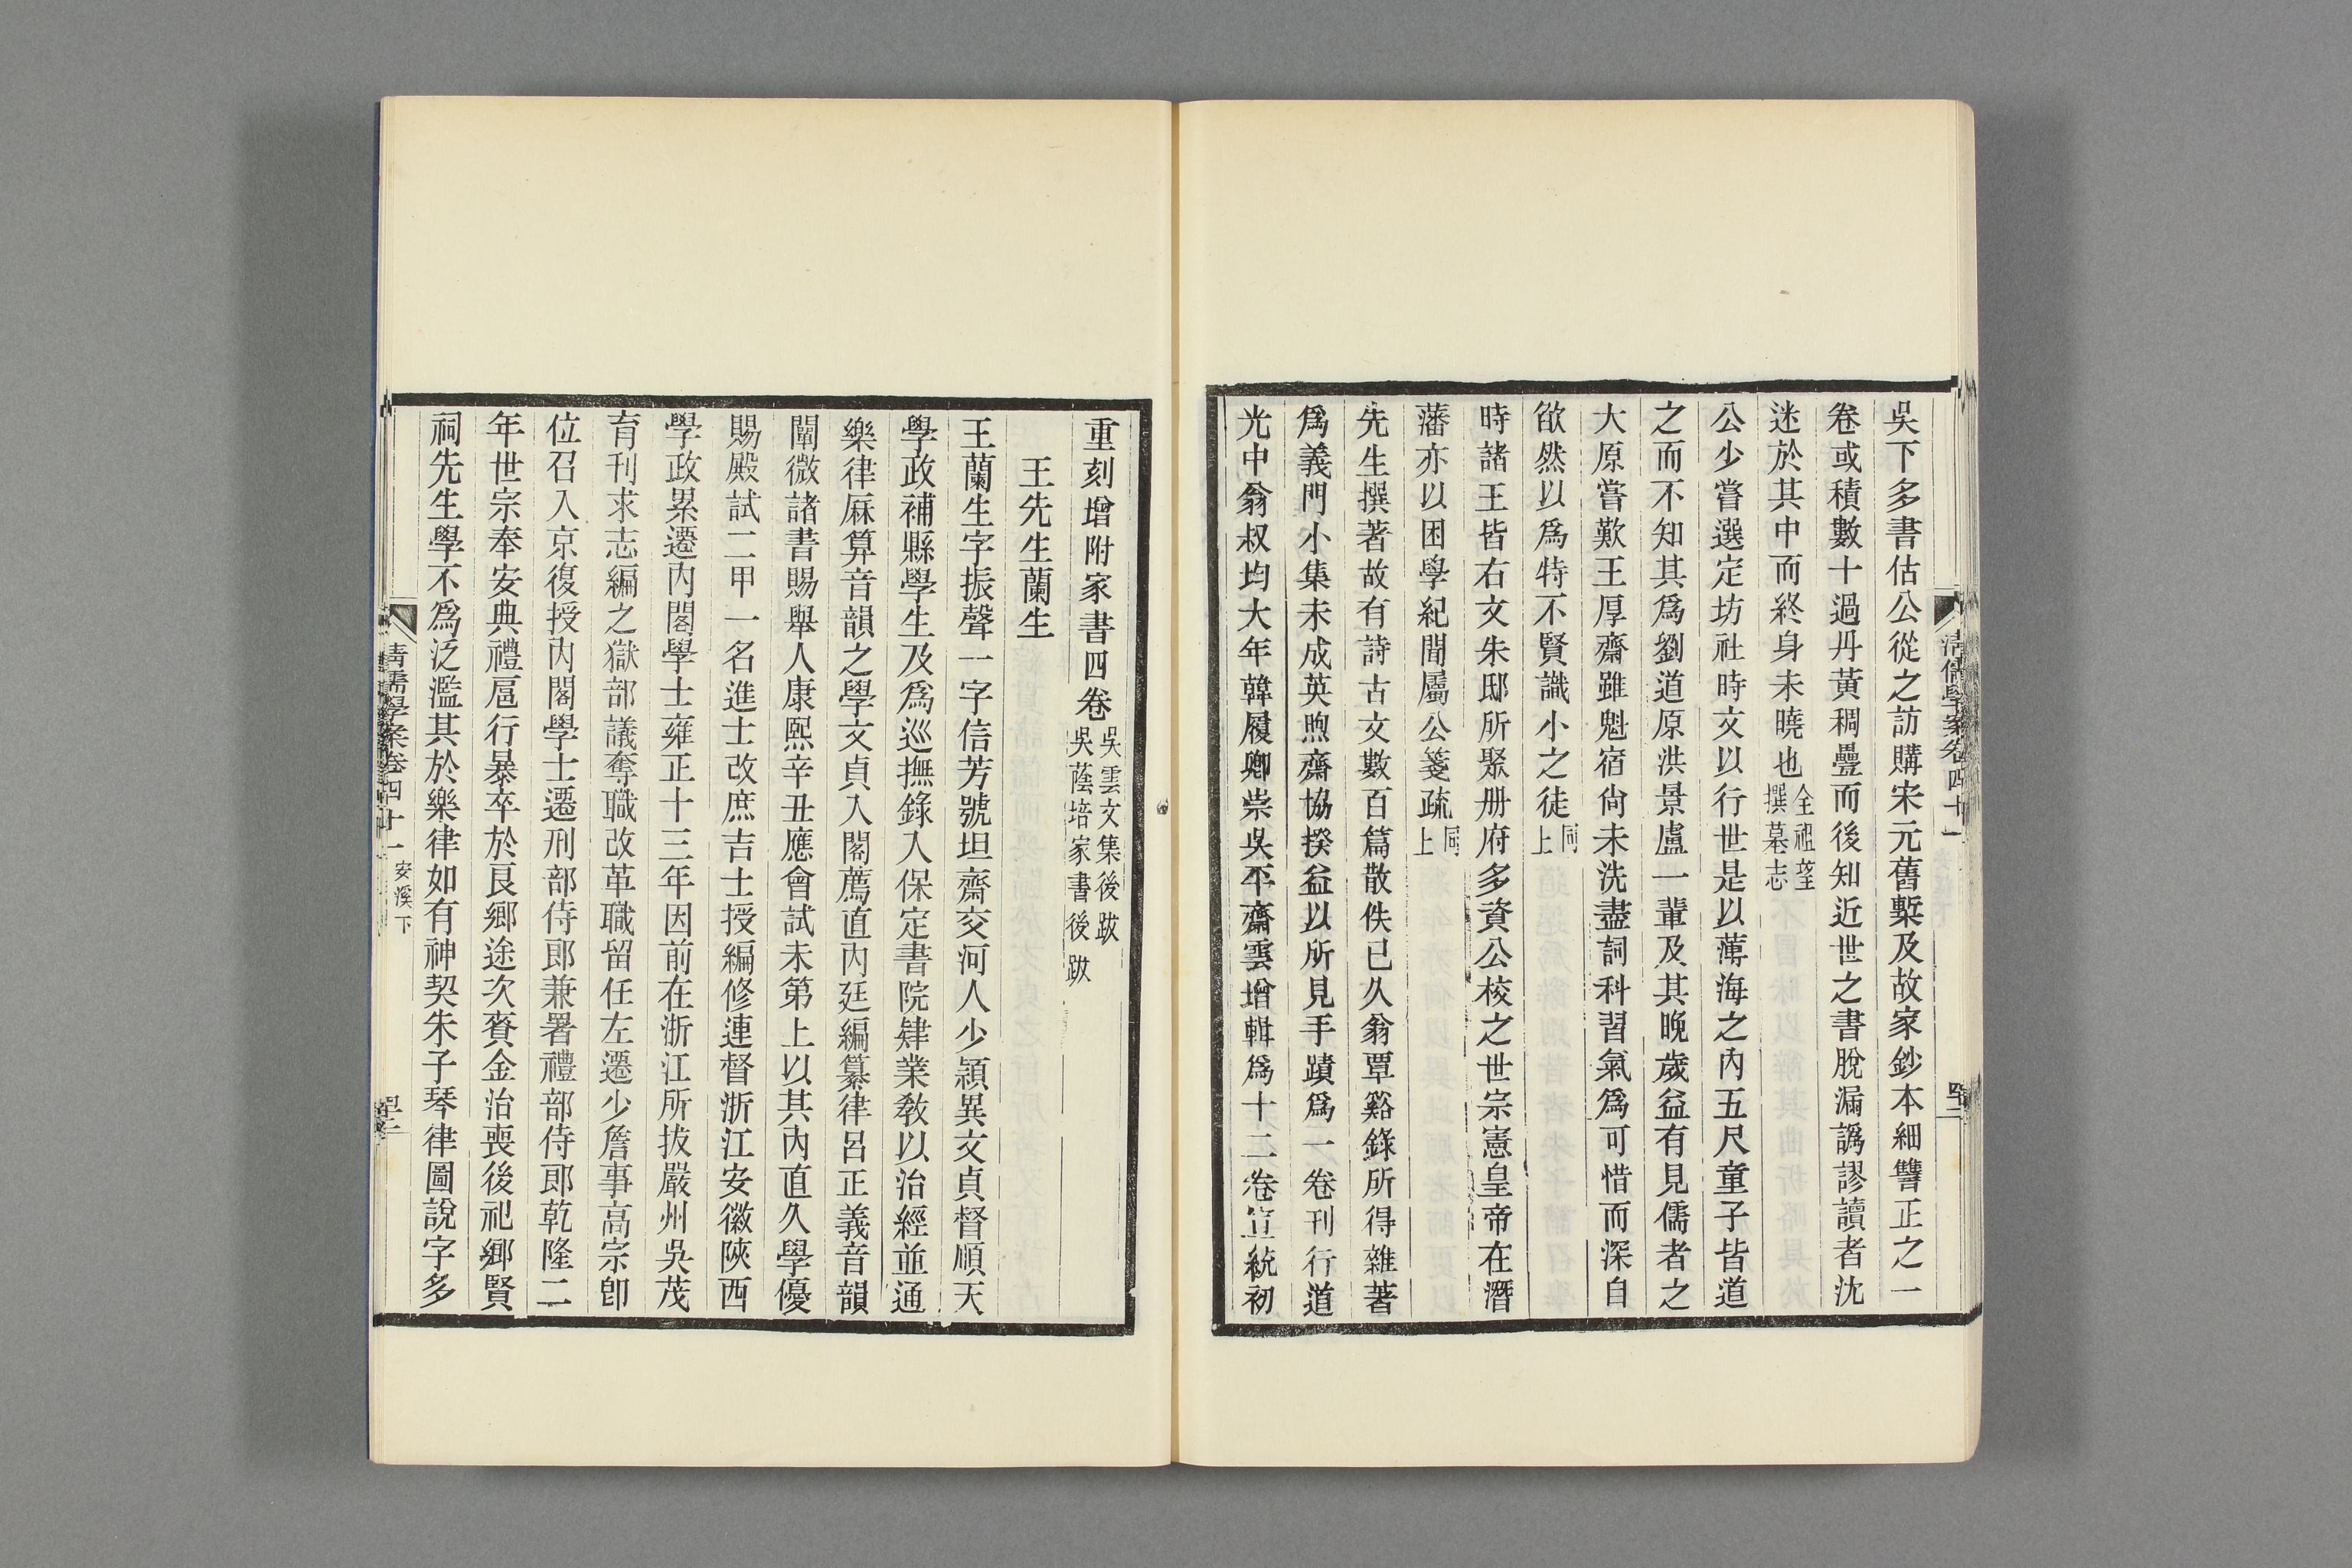 吳下多書估公從之訪購宋元舊槧及故家鈔本細讐正之一
卷或積數十過丹黃稠疊而後知近世之書脫漏譌謬讀者沈
迷於其中而終身未曉也全祖望撰墓志
公少嘗選定坊社時文以行世是以薄海之內五尺童子皆道
之而不知其爲劉道原洪景盧一輩及其晚歲益有見儒者之
大原嘗歎王厚齋雖魁宿尙未洗盡詞科習氣爲可惜而深自
欿然以爲特不賢識小之徒同上
時諸王皆右文朱邸所聚册府多資公校之世宗憲皇帝在潛
藩亦以困學紀聞屬公箋疏同上
先生撰著故有詩古文數百篇散佚已久翁覃谿錄所得雜著
爲義門小集未成英煦齋協揆益以所見手蹟爲一卷刊行道
光中翁叔均大年韓履卿崇吳平齋雲增輯爲十二卷宣統初
清儒學案卷四十一
重刻增附家書四卷吳雲文集後跋吳蔭培家書後跋
王先生蘭生
王蘭生字振聲一字信芳號坦齋交河人少穎異文貞督順天
學政補縣學生及爲巡撫錄入保定書院肄業敎以治經並通
樂律厤算音韻之學文貞入閣薦直內廷編纂律呂正義音韻
闡微諸書賜舉人康熙辛丑應會試未第上以其內直久學優
賜殿試二甲一名進士改庶吉士授編修連督浙江安徽陝西
學政累遷內閣學士雍正十三年因前在浙江所拔嚴州吳茂
育刊求志編之獄部議奪職改革職留任左遷少詹事高宗卽
位召入京復授內閣學士遷刑部侍郎兼署禮部侍郎乾隆二
年世宗奉安典禮扈行暴卒於良鄉途次賚金治喪後祀鄉賢
祠先生學不爲泛濫其於樂律如有神契朱子琴律圖說字多
清儒學案卷四十一 安溪下